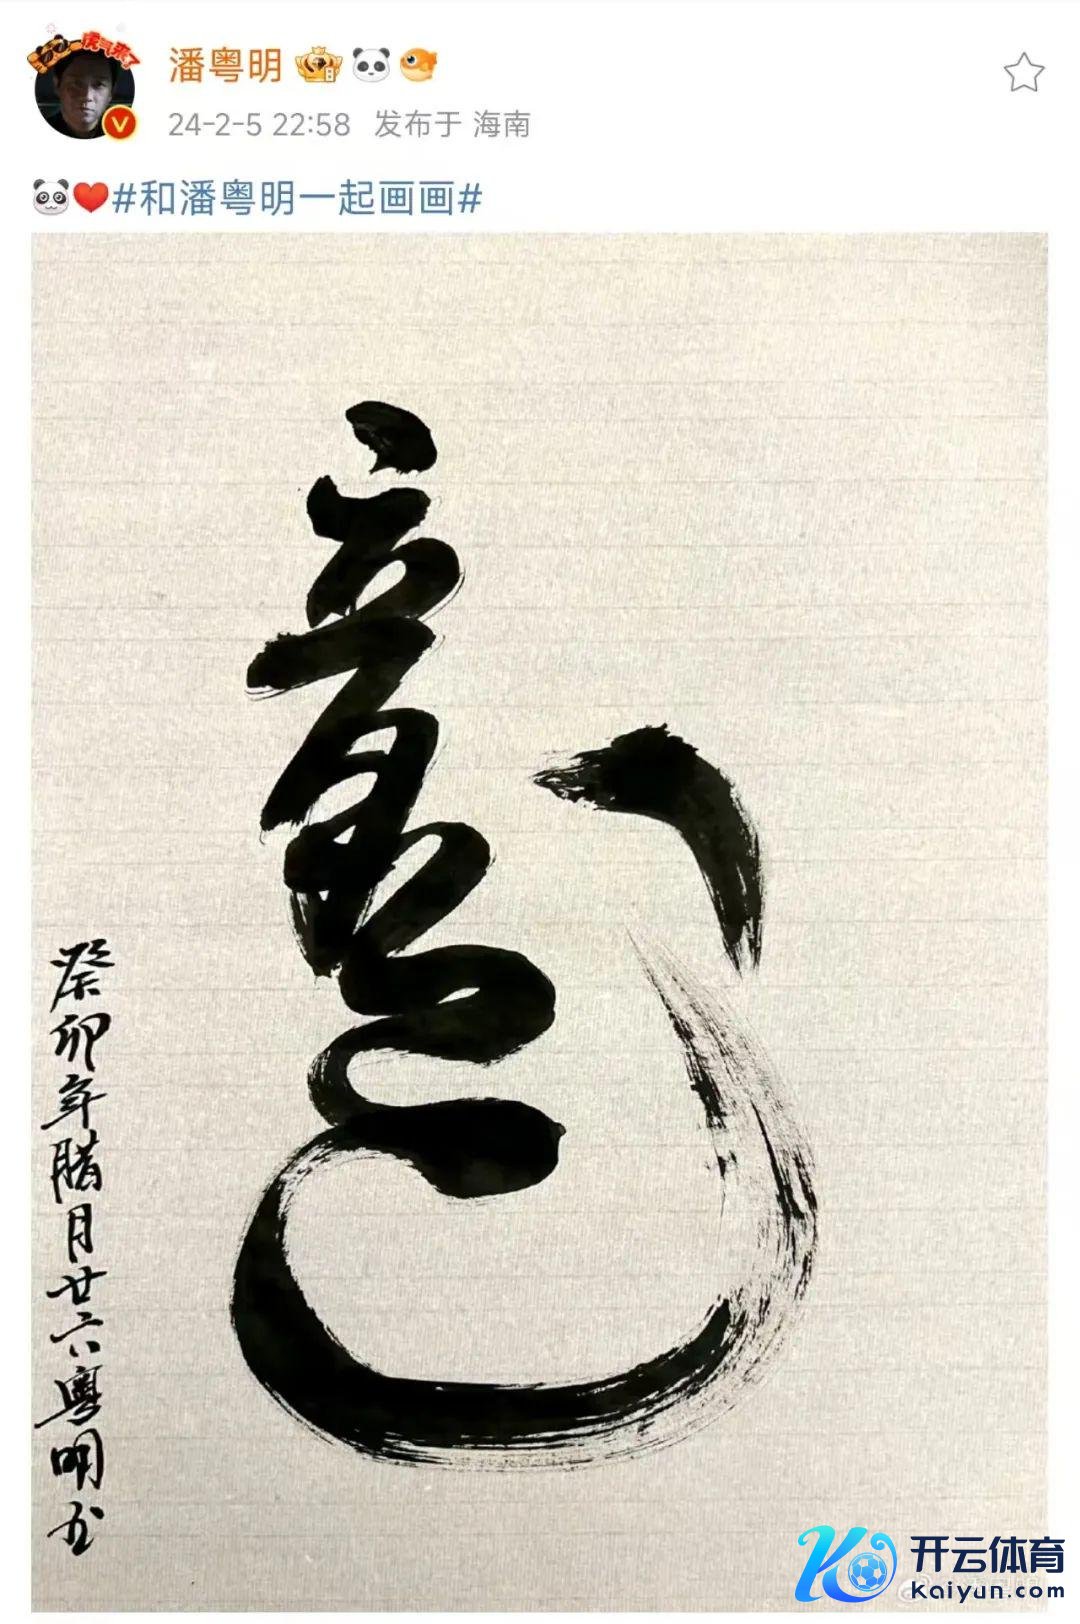 虎气来了
潘粤明
24-2-5 22:58 发布于 海南
#和潘粤明一起画画#
龍
癸卯年腊月廿六粤明书
开云体育
Kaiyun.com